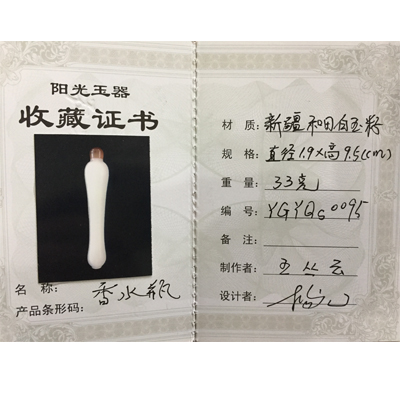 阳光玉器
收藏证书
名 称: 香水瓶
产品条形码:
材 质: 新疆和田白玉籽
规 格: 直径1.9×高9.5(cm)
重 量: 33克
编 号: YGYQs0095
备 注:
制作者: 王丛云
设计者: